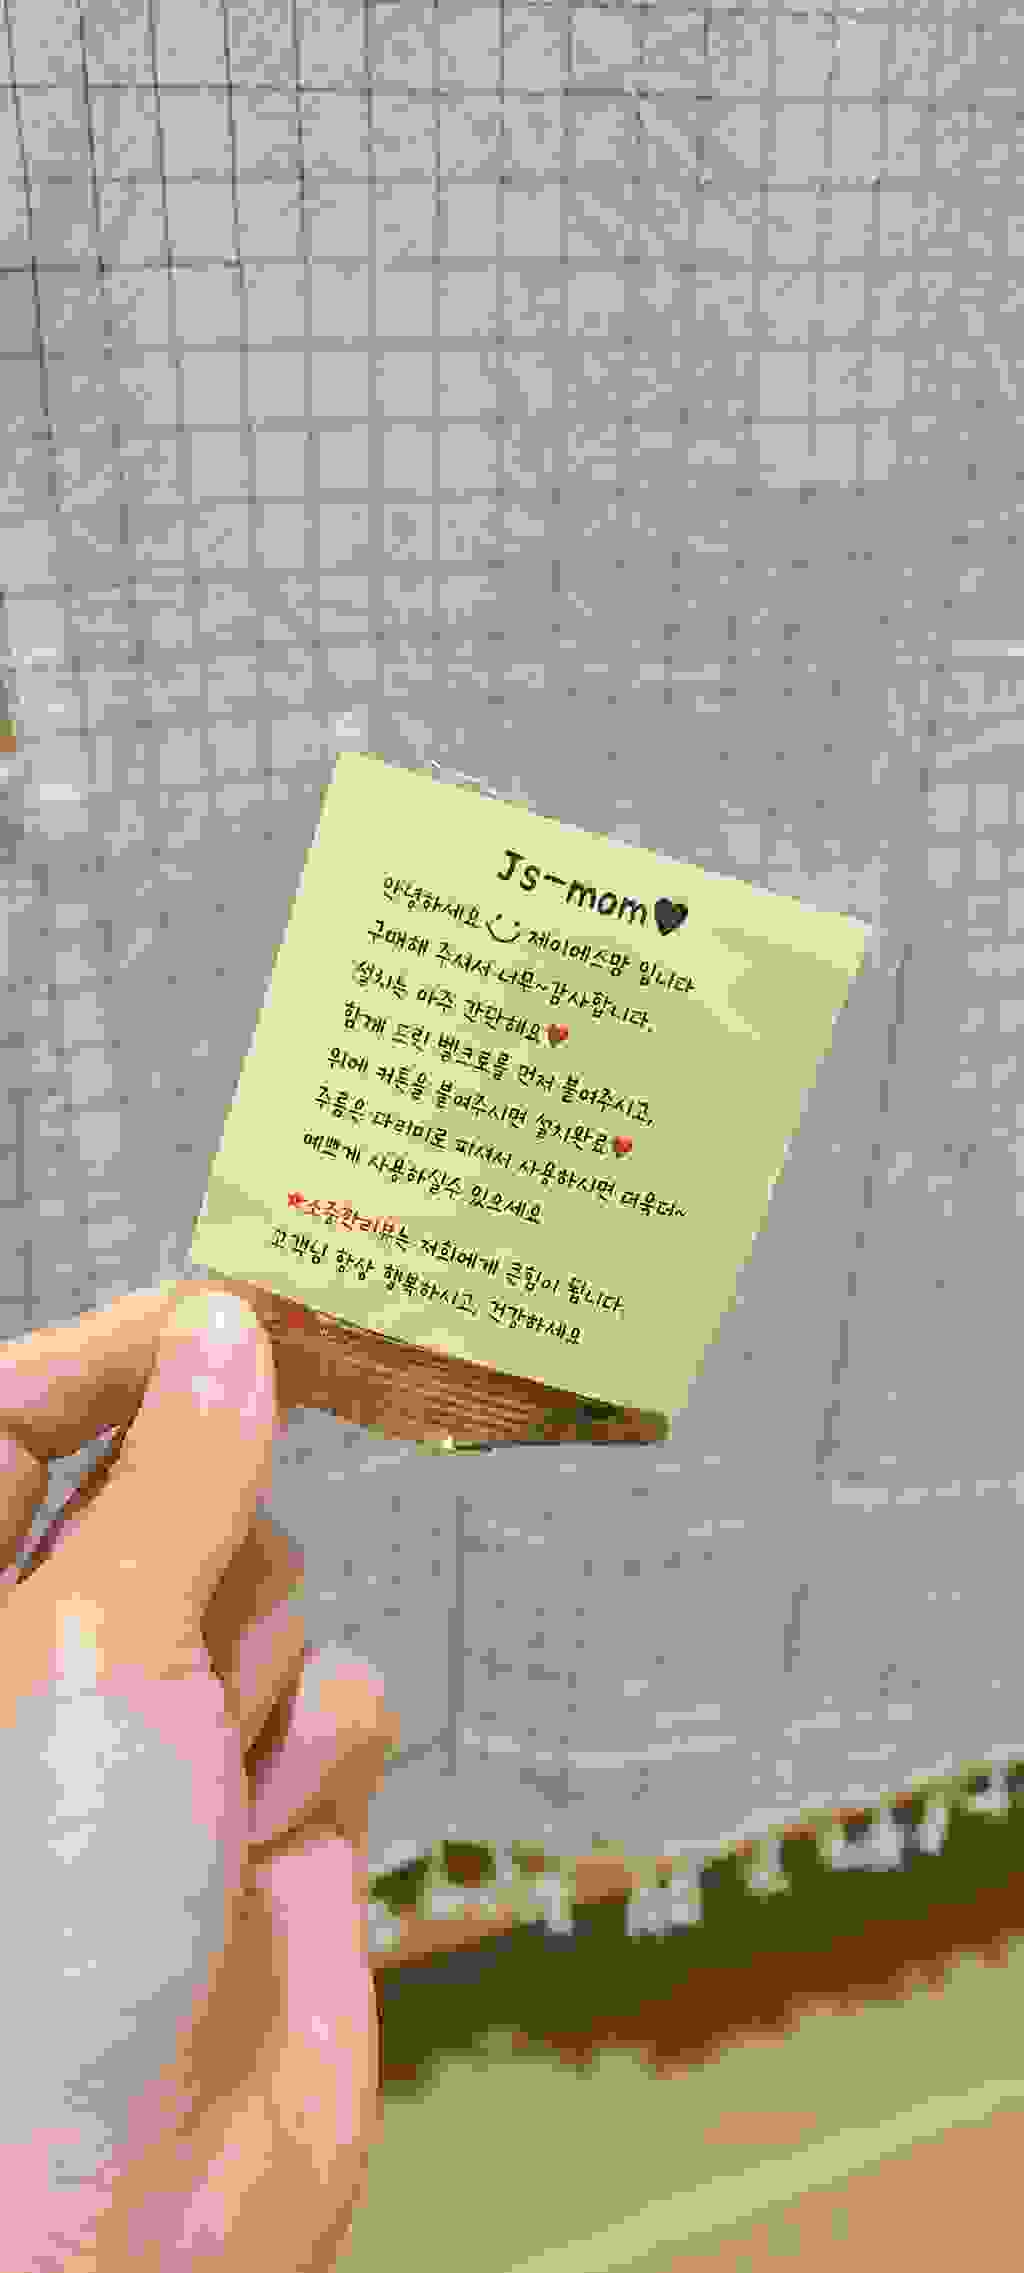 Js-mom🖤
안녕하세요 제이에스맘 입니다
구매해 주셔서 너무~감사합니다.
설치는 아주 간단해요❤
함께 드린 벨크로를 먼저 붙여주시고,
위에 커튼을 붙여주시면 설치완료❤
주름은 다리미로 피셔서 사용하시면 더욱더~
예쁘게 사용하실수 있으세요
★소중한리뷰는 저희에게 큰힘이 됩니다.
고객님 항상 행복하시고, 건강하세요